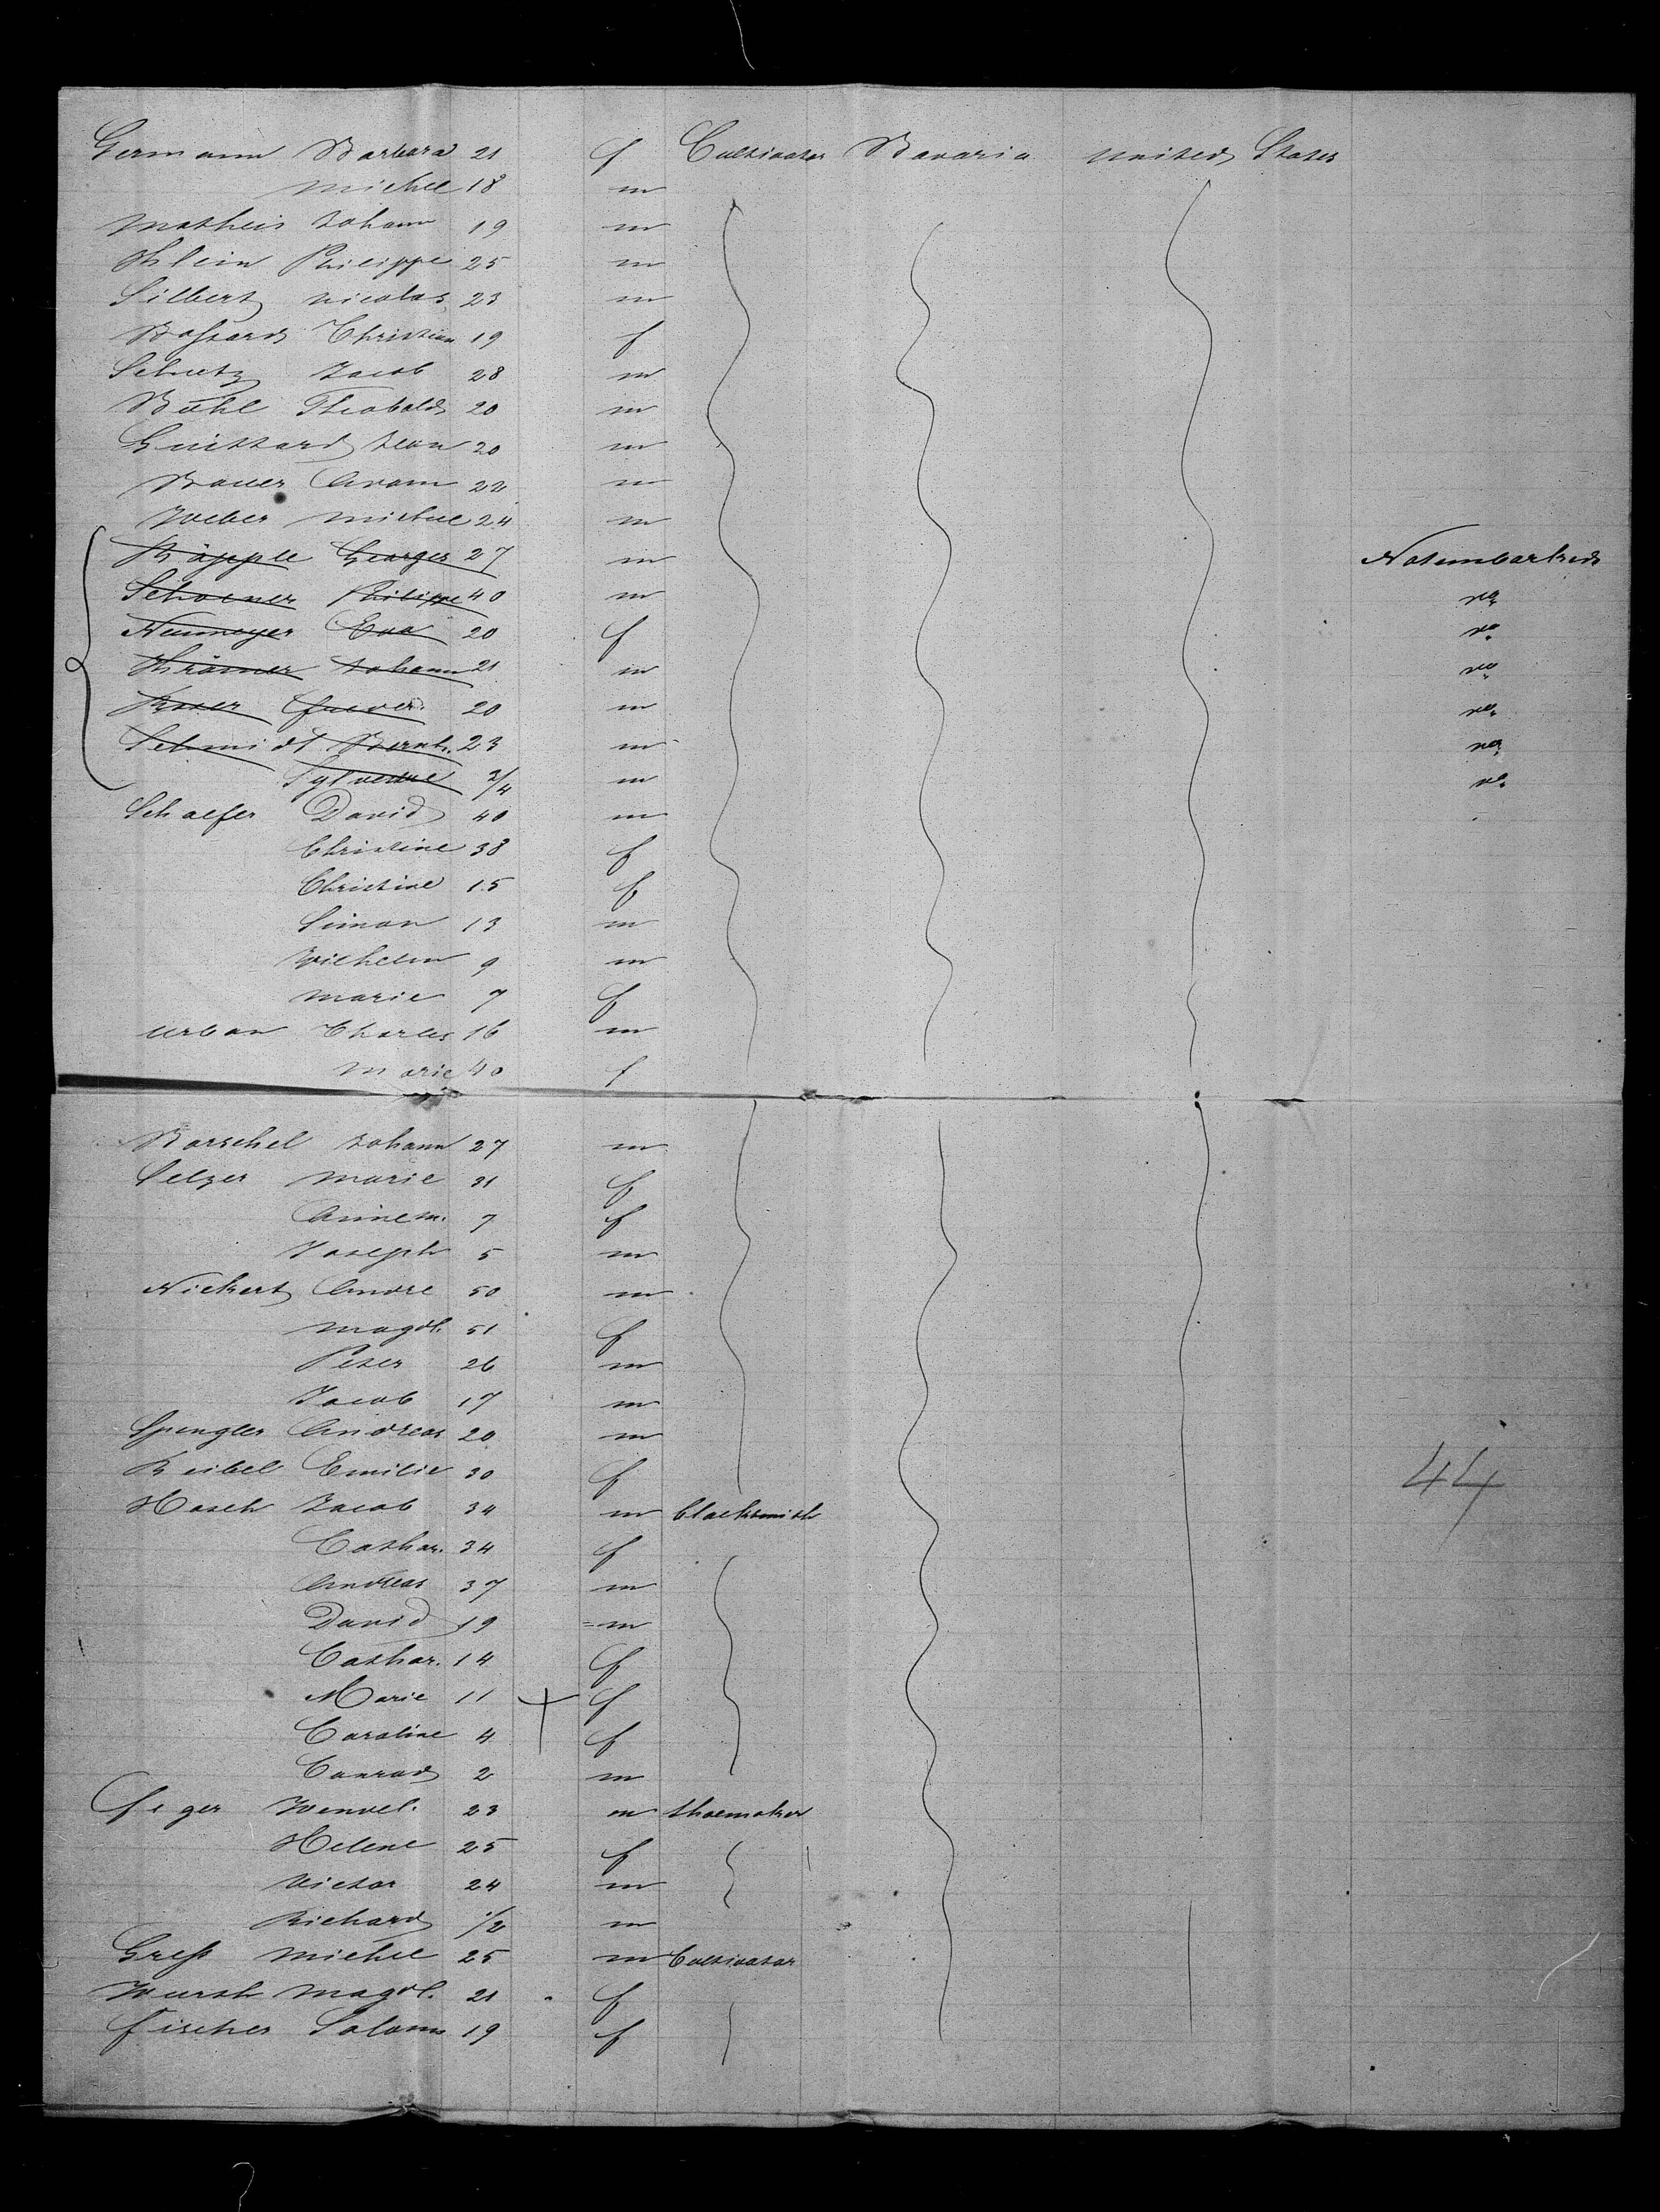 Germann Barbara 21 f Cultivator Bavaria united States
Michel 18 m
Matheis Johann 19 m
Klein Philippe 25 m
Silbert Nicolas 23 m
Christian 19 f
Schutz Jacob 28 m
Bühl Theobald 20 m
Guittard Jean 20 m
Bauer Avam 22 m
Weber Michel 24 m
Käpple Georges 27 m Notembarked
Schoener Philippe 40 m
Neumeyer Eva 20 f
Krämer Johann 21 m
20 m
Schmidt Bernh. 23 m
Sylvestre 3/4 m
Schaefer David 40 m
Christine 38 f
Christine 15 f
Simon 13 m
Wilhelm 9 m
Marie 7 f
Urban Charles 16 m
Marie 40 f
Barschel Johann 27 m
Selzer Marie 31 f
Anne m. 7 f
Joseph 5 m
Nickert Andre 50 m
Magdl. 51 f
Peter 26 m
Jacob 17 m
Spengler Andreas 20 m
Reibel Emilie 30 f
44
Hasch Jacob 34 m blacksmith
Cathar. 34 f
Andreas 37 m
David 19 m
Cathar. 14 f
Marie 11 + f
Caroline 4 f
Conrad 2 m
Wendel. 23 m shoemaker
Helene 25 f
Victor 24 m
Richard 1/2 m
Greß Michel 25 m Cultivator
Magdl. 21 f
Fischer Salome 19 f